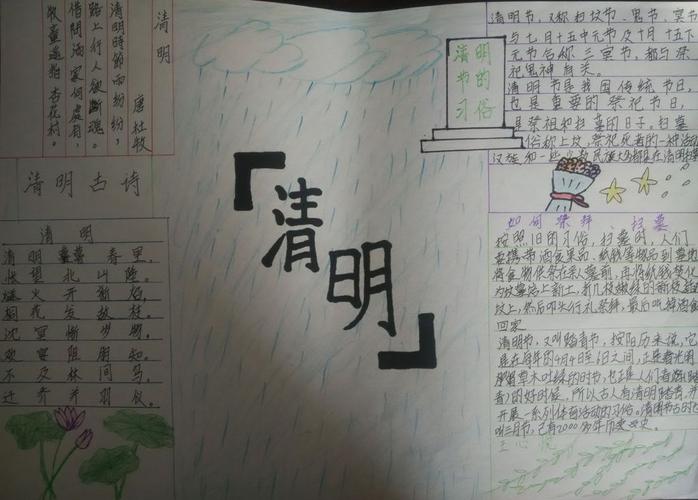 清明
唐 杜牧
清明時節雨紛紛,
路上行人欲斷魂。
借問酒家何處有,
牧童遥指杏花村。
清明古诗
清明
清明 春里,
怅望北山陲。
燧火开新焰,
桐花发故枝。
沈冥惭岁物,
欢宴阻朋知。
不及林间鸟,
迁乔并羽仪。
「清明」
清明
节的
习俗
清明节,又称扫坟节、鬼节、冥节
与七月十五中元节及十月十五下
元节合称三冥节,都与祭
祀鬼神有关。
清明节是我国传统节日,
也是重要的祭祀节日,
是祭祖和扫墓的日子。扫墓
俗称上坟,祭祀死者的一种活动
汉族和一些少数民族大多都是在清明扫墓
如何祭拜、扫墓
按照旧的习俗,扫墓时,人们
要携带酒食果品,纸钱等物品到墓地
将食物供祭在亲人墓前,再将纸钱焚化
为坟墓培上新土,折几枝嫩绿的新枝插在
坟上,然后叩头行礼祭拜,最后吃掉酒食
回家
清明节,又叫踏青节,按阳历来说,它
是在每年的4月4日至6日之间,正是春光明
媚草木吐绿的时节,也正是人们春游(踏
青)的好时候,所以古人有清明踏青,并
开展一系列体育活动的习俗。清明节古时也
叫三月节,已有2000多年历史。